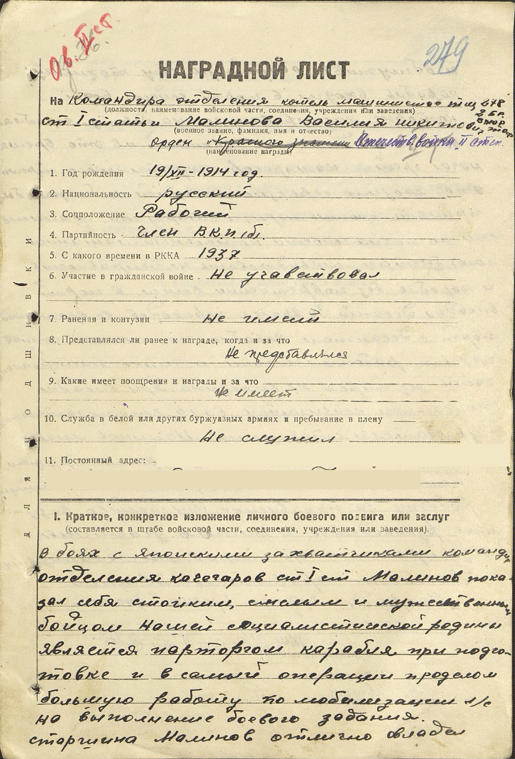 Ов. II ст
279
НАГРАДНОЙ ЛИСТ
На Командира отделения котельн. машинистов тщ 648
(должность, наименование войсковой части, соединения, учреждения или заведения)
ст I статьи Малинова Василия
(воинское звание, фамилия, имя и отчество)
орден «Красного знамени» Отечеств. войны II степ.
(наименование награды)
1. Год рождения 19/XII - 1914 год.
2. Национальность русский
3. Соцположение Рабочий
4. Партийность Член В.К.П.(б).
5. С какого времени в РККА 1937
6. Участие в гражданской войне Не учавствовал
7. Ранения и контузии Не имеет
8. Представлялся ли ранее к награде, когда и за что
Не представлялся
9. Какие имеет поощрения и награды и за что
Не имеет
10. Служба в белой или других буржуазных армиях и пребывание в плену
Не служил
11. Постоянный адрес:
для подшивки
I. Краткое, конкретное изложение личного боевого подвига или заслуг
(составляется в штабе войсковой части, соединения, учреждения или заведения).
В боях с японскими захватчиками командир
отделения кочегаров ст I ст Малинов пока-
зал себя стойким, смелым и мужественным
бойцом нашей социалистической родины
является парторгом карабля при подго-
товке и в самый операции проделал
большую работу по мобилизации л/с
на выполнение боевого задания.
старшина Малинов отлично владел